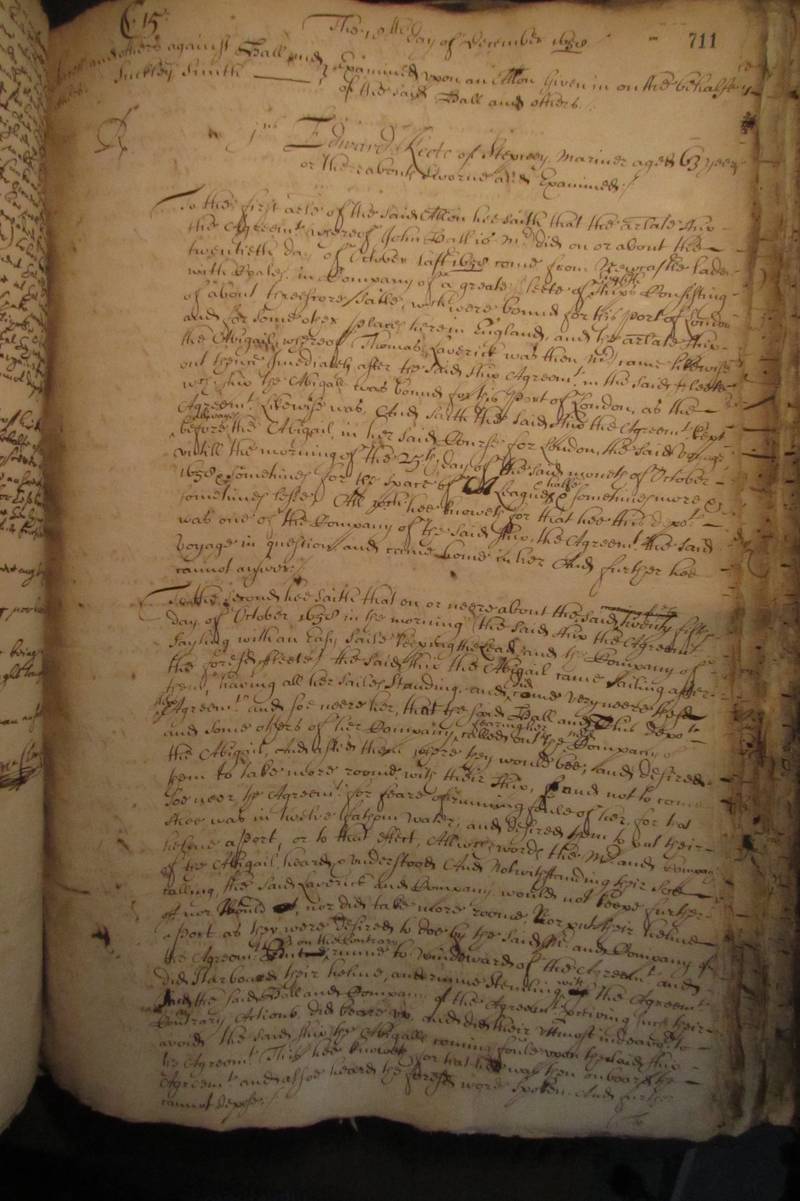 C. 15
The 10th day of December 1658 711
and others against Hall and Examined upon an Allon Given in on the behalfe
Suckley Smith of the said Hall and others.
1us Edward Keete of Stepney Mariner aged 63 yeeres
or thereabouts sworne and Examined./
To the first arle of the said Allon hee saith that the arlate ship
the Agreemt whereof John Hall is Mr did on or about the
twentieth day of October last 1658 come from Newcastle laden
with Coales in Company of a greate fleete of ships Consisting
of about threescore saile, wch were bound for this port of London
and for some other places here in England, and the arlate ship
the Abigail whereof Thomas Laverick was then Mr came likewise
out thence Immediately after the said ship Agreemt, in the said fleete
wch ship the Abigail was bound for this Port of London, as the
Agreemt likewise was. And saith the said ship the Agreemt kept
allwayes
before the Abigail in her said Course for London, the said voyage
untill the morning of the 25th day of the said moneth of October
1658, sometimes for the space of Leagues & sometimes more &
sometimes lesse. All wch hee knoweth for that hee this dept
was one of the Company of the said ship the Agreemt the said
voyage in question and came home in her And further hee
cannot answer./
To the second hee saith that on or neere about the said twenty fifth
day of October 1658 in the morning the said ship the Agreemt
sayling with an Easy saile keeping the Lead, and the Company of
the foresd fleete, the said ship the Abigail came sailing after
them, having all her sailes standing, and did come very neere the
Agreemt and soe neere her, that the said Hall and this depot
and some others of her Company called out to the Company of
the Abigail, And asked them where they would bee, and desired
them to take more roome with their ship, and not to come
soe neer the Agreemt for feare of running foule of her, for that
shee was in twelve fathom water, and desired them to put their
helme aport, or to that effect, All wch words the Mr and Company
of the Abigail heard & understood And Notwithstanding their soe
calling, the said Laverick and Company would not keepe further
of nor would nor did take more roome Nor put their helme
aport as they were desired to doe by the said Mr and Company of
on the Contrary
the Agreemt But runne to windeward of the Agreemt and
did starboard their helme, and runne Stemling with the Agreemt
And the said Hall and Company of the Agreemt perceiving such their
Contrary Actions did beare up and did their uttmost indeavor to
avoid the said ship the Abigails coming foule upon the said ship
the Agreemt This hee knoweth for that hee was then onboard the
Agreemt and alsoe heard the foresd words spoken. And further
cannot depose./